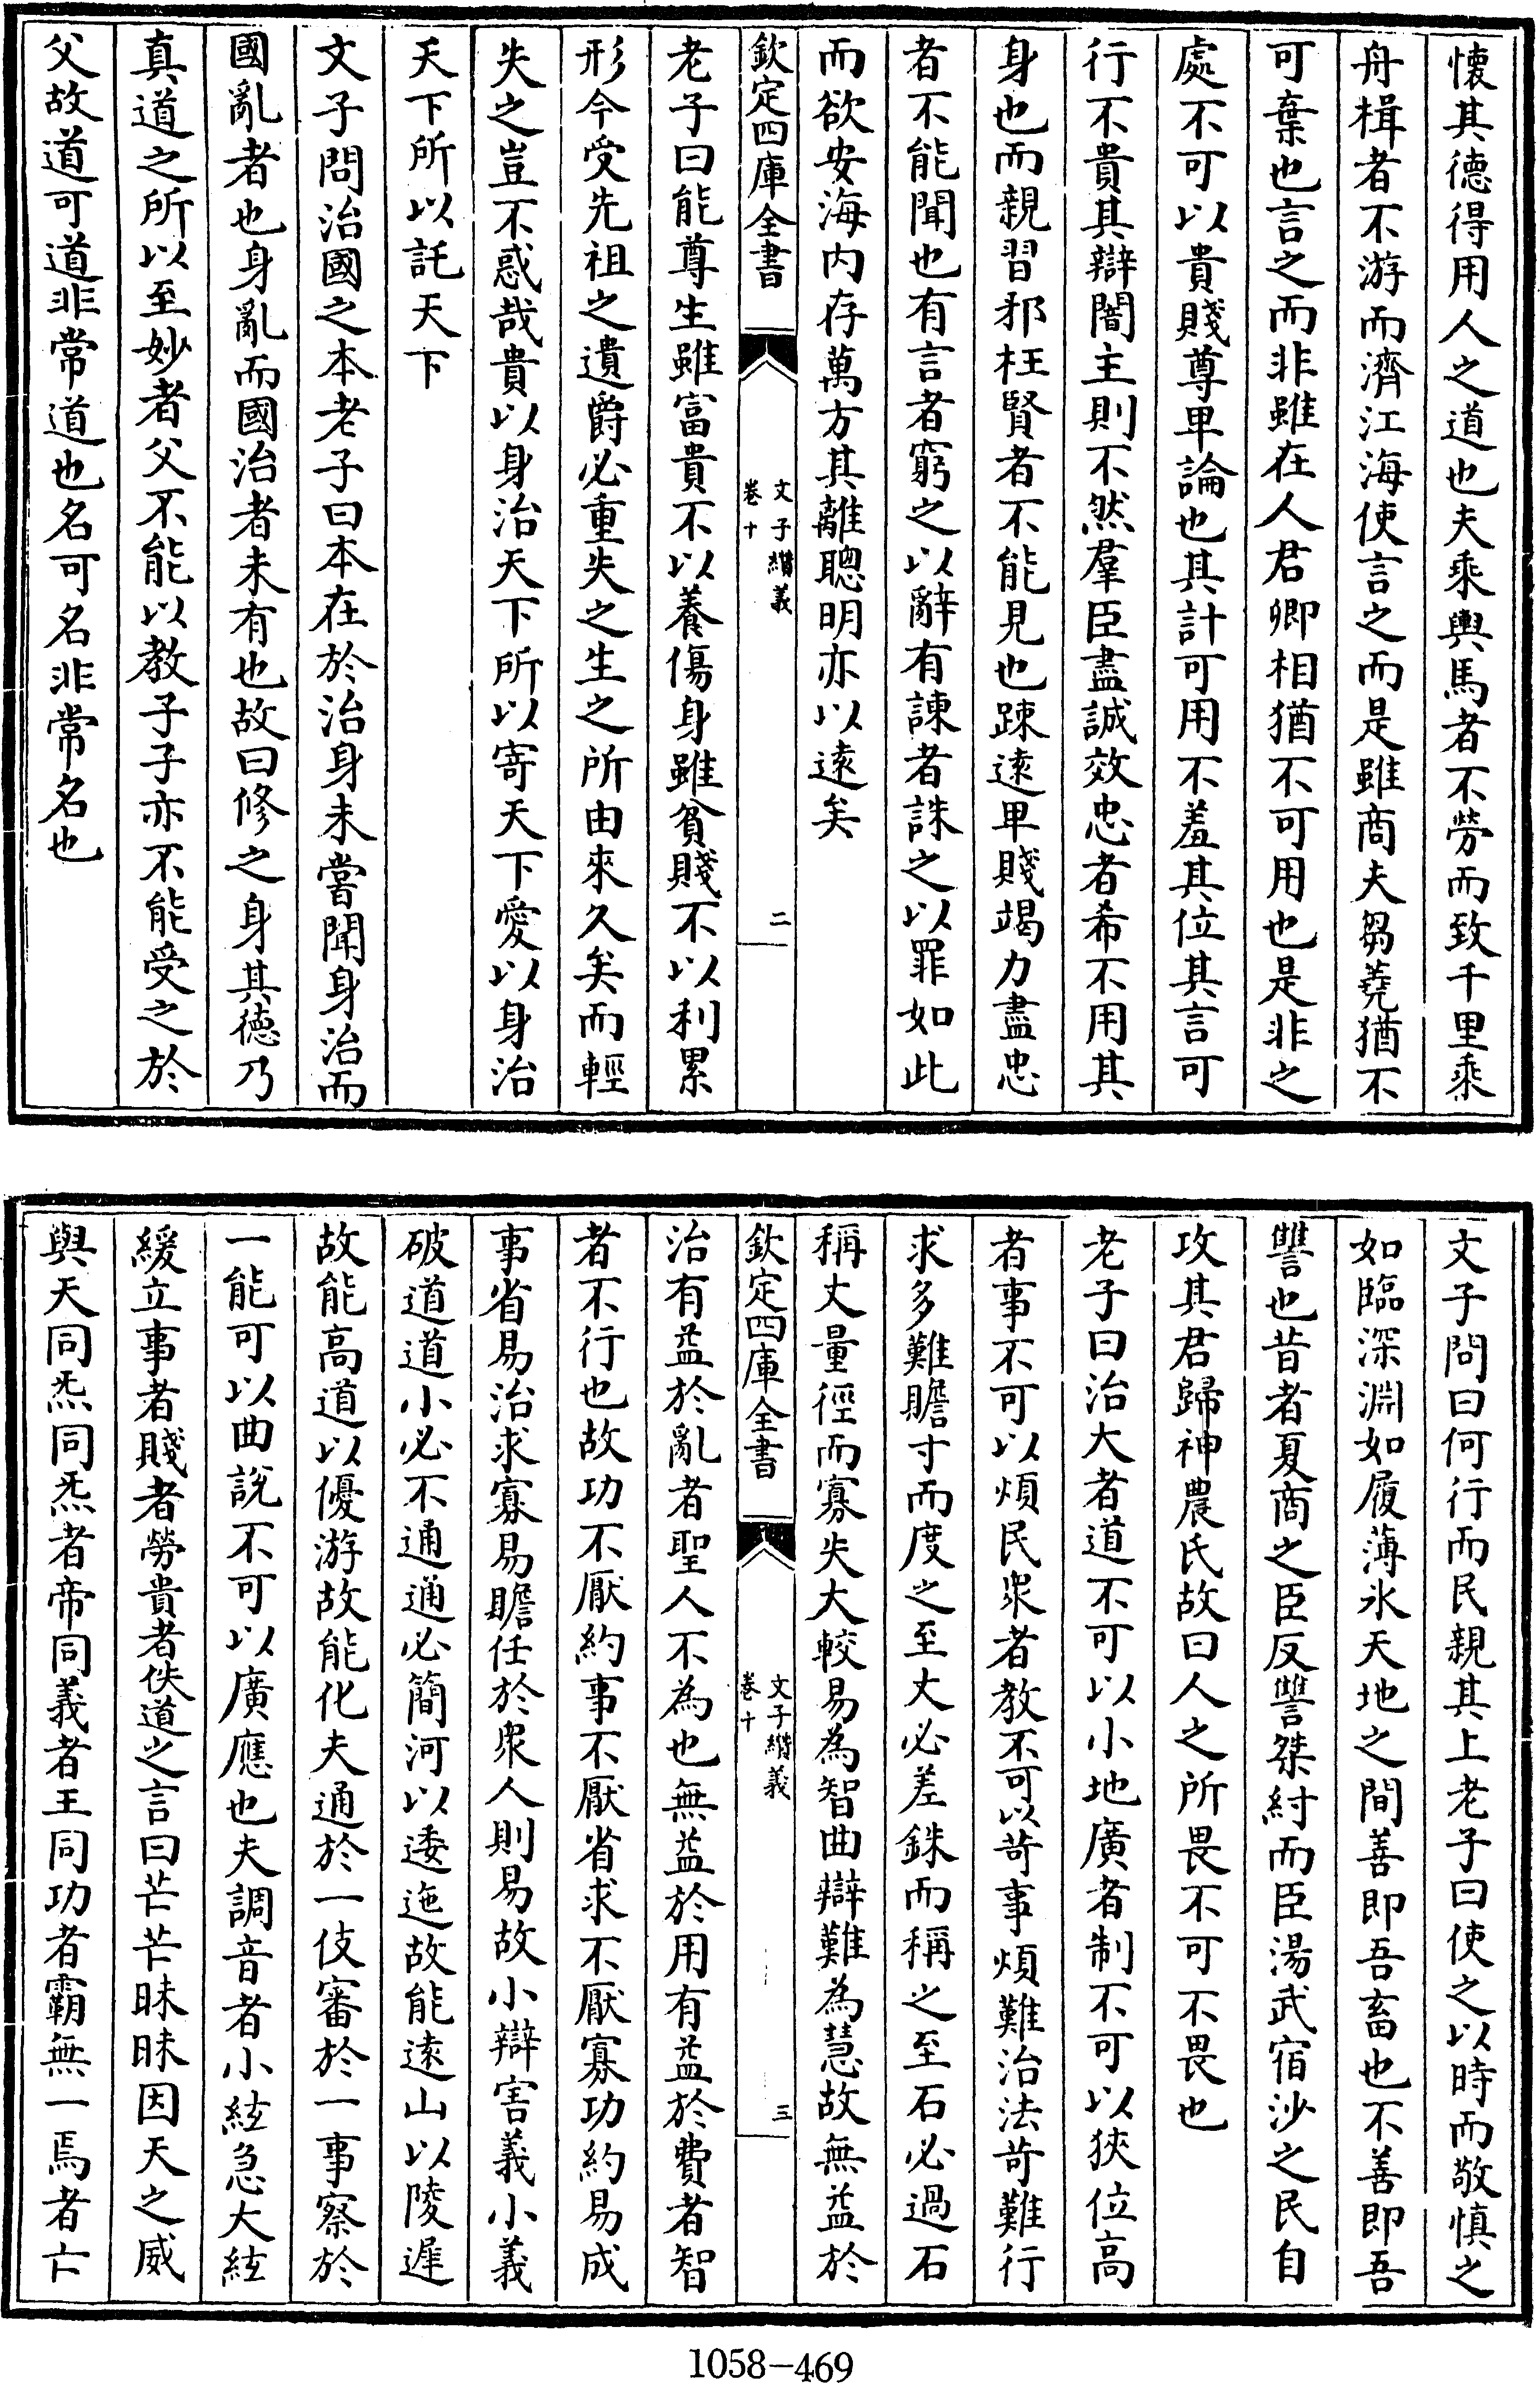 懐其德得用人之道也夫乘輿馬者不勞而致千里乘
舟楫者不游而濟江海使言之而是雖商夫芻蕘猶不
可棄也言之而非雖在人君卿相猶不可用也是非之
處不可以貴賤尊卑論也其計可用不羞其位其言可
行不貴其辯闇主則不然羣臣盡誠效忠者希不用其
身也而親習邪枉賢者不能見也踈遠卑賤竭力盡忠
者不能聞也有言者窮之以辭有諫者誅之以罪如此
而欲安海内存萬方其離聰明亦以遠矣
欽定四庫全書
文子纘義
卷十
二
老子曰能尊生雖富貴不以養傷身雖貧賤不以利累
形今受先祖之遺爵必重失之生之所由來久矣而輕
失之豈不惑哉貴以身治天下所以寄天下愛以身治
天下所以託天下
文子問治國之本老子曰本在於治身未嘗聞身治而
國亂者也身亂而國治者未有也故曰修之身其德乃
真道之所以至妙者父不能以教子子亦不能受之於
父故道可道非常道也名可名非常名也
文子問曰何行而民親其上老子曰使之以時而敬慎之
如臨深淵如履薄氷天地之間善即吾畜也不善即吾
讐也昔者夏商之臣反讐桀紂而臣湯武宿沙之民自
攻其君歸神農氏故曰人之所畏不可不畏也
老子曰治大者道不可以小地廣者制不可以狹位高
者事不可以煩民衆者教不可以苛事煩難治法苛難行
求多難贍寸而度之至丈必差銖而稱之至石必過石
稱丈量徑而寡失大較易為智曲辯難為慧故無益於
欽定四庫全書
文子纘義
卷十
三
治有益於亂者聖人不為也無益於用有益於費者智
者不行也故功不厭約事不厭省求不厭寡功約易成
事省易治求寡易贍任於衆人則易故小辯害義小義
破道道小必不通通必簡河以逶迤故能遠山以陵遲
故能高道以優游故能化夫通於一伎審於一事察於
一能可以曲說不可以廣應也夫調音者小絃急大絃
緩立事者賤者勞貴者佚道之言曰芒芒昧昧因天之威
與天同炁同炁者帝同義者王同功者霸無一焉者亡
1058-469